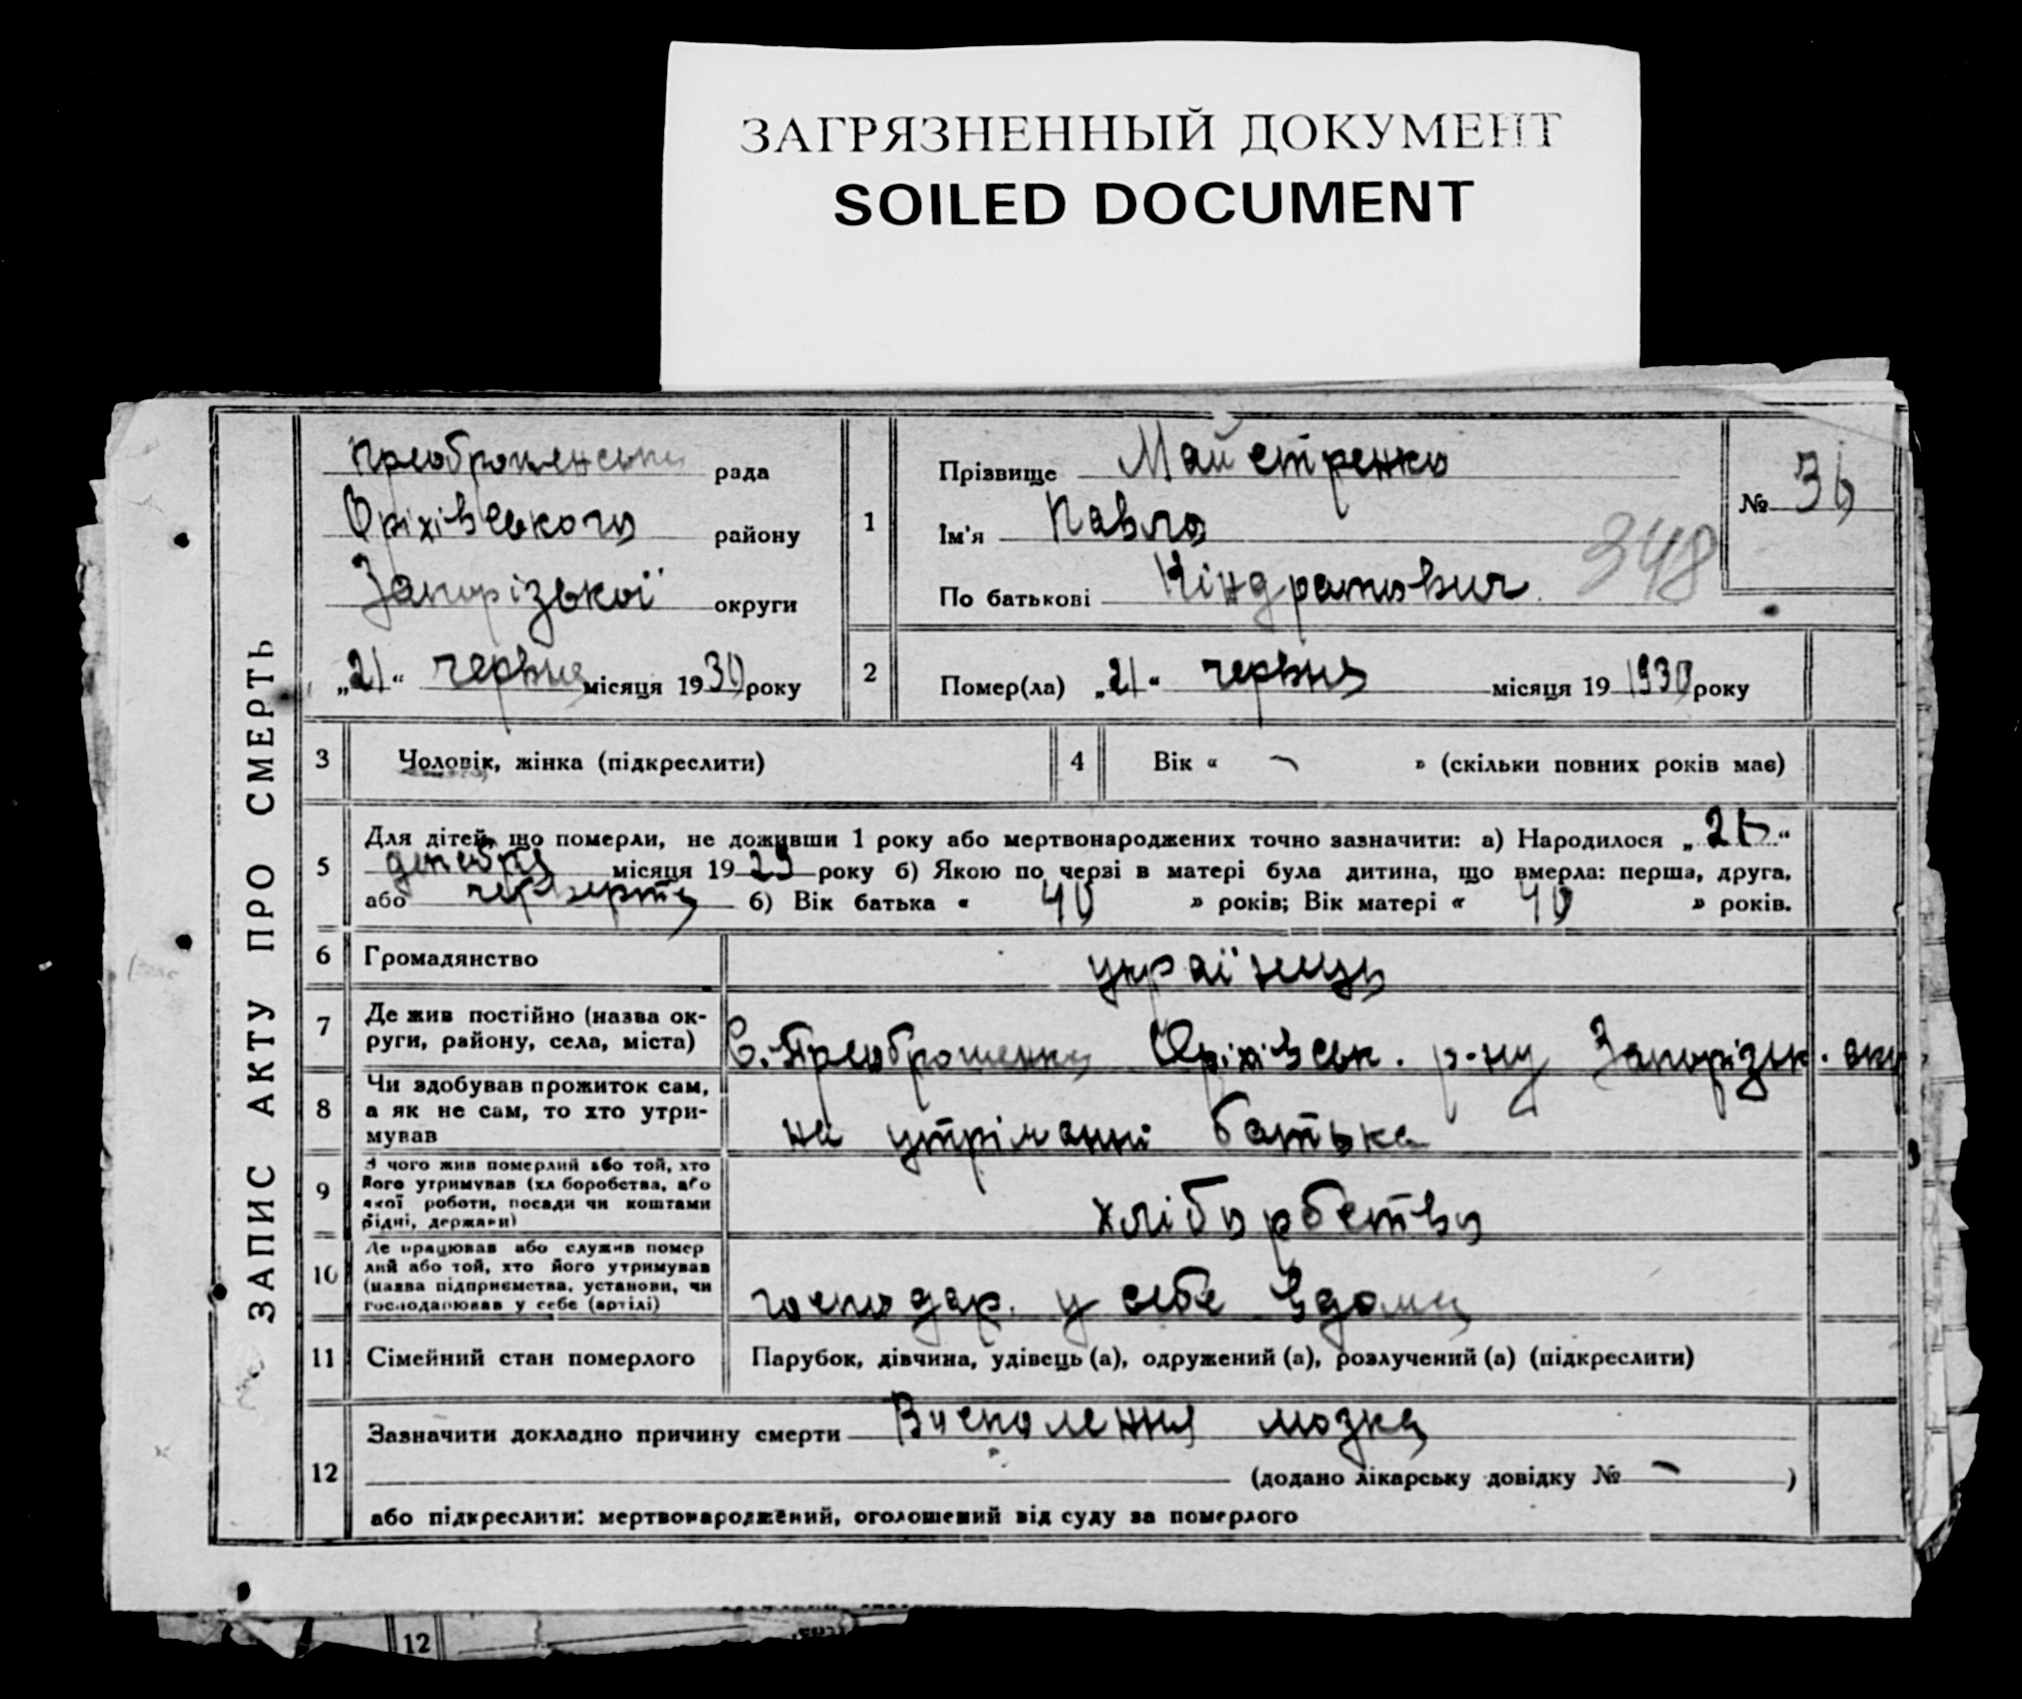 ЗАГРЯЗНЕННЫЙ ДОКУМЕНТ
SOILED DOCUMENT
ЗАПИС АКТУ ПРО СМЕРТЬ
рада
Оріхівського району
Запорізької округи
„21“ червня місяця 1930 року
1
Прізвище Майстренко
Ім'я Павло
По батькові Кіндратович
№ 36
348
2
Помер(ла) „21“ червня місяця 19 1930 року
3 Чоловік, жінка (підкреслити)
4 Вік « – » (скільки повних років має)
5 Для дітей, що померли, не доживши 1 року або мертвонароджених точно зазначити: а) Народилося „ “
місяця 1929 року б) Якою по черзі в матері була дитина, що вмерла: перша, друга,
або четверта б) Вік батька « 40 » років; Вік матері « 40 » років.
6 Громадянство українець
7 Де жив постійно (назва ок-
руги, району, села, міста)
С. Преображенка Оріхівськ. р-ну Запорізьк. окр
8 Чи здобував прожиток сам,
а як не сам, то хто утри-
мував
на утріманні батька
9 З чого жив померлий або той, хто
його утримував (хліборобства, або
якої роботи, посади чи коштами
рідні, держави)
хліборбство
10 Де працював або служив помер
лий або той, хто його утримував
(назва підприємства, установи, чи
господарював у себе (артілі)
господар. у себе вдома
11 Сімейний стан померлого Парубок, дівчина, удівець (а), одружений (а), розлучений (а) (підкреслити)
12 Зазначити докладно причину смерти Виспалення мозка
(додано лікарську довідку № – )
або підкреслити: мертвонароджений, оголошений від суду за померлого
12